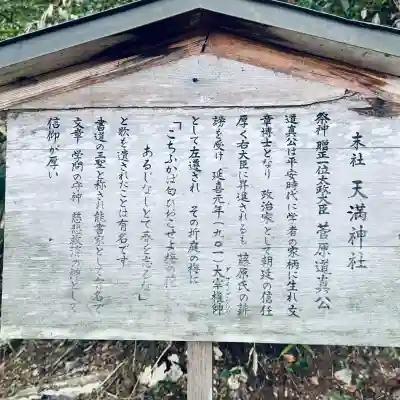 末社 天満神社
祭神 贈正一位太政大臣 菅原道真公
道真公は平安時代に学者の家柄に生れ文
章博士となり 政治家として朝廷の信任
厚く右大臣に昇進されるも 藤原氏の讒
謗を受け 延喜元年(九〇一)大宰権帥
として左遷され その折庭の梅に
「こちふかば匂ひおこせよ梅の花
あるじなしとて春を忘るな」
と歌を遺されたことは有名です
書道の三聖と称され能書家としても有名で
文章 学問の守神 慈悲救済の神として
信仰が厚い